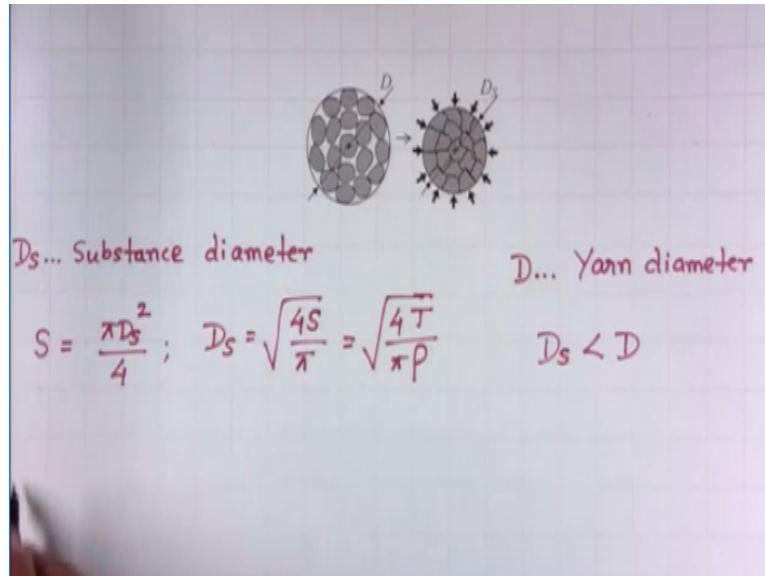 D Ds
Ds... Substance diameter
D... Yarn diameter
S = πDs²/4 ; Ds = √(4S/π) = √(4T/πρ)
Ds < D